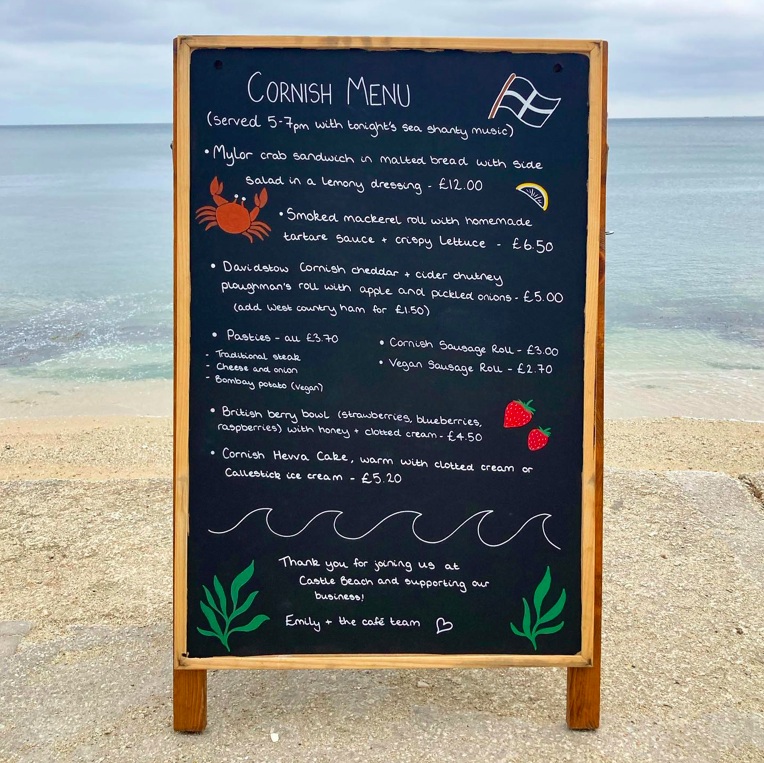 CORNISH MENU
(served 5-7pm with tonight's sea shanty music)
• Mylor crab sandwich in malted bread with side
salad in a lemony dressing - £12.00
• Smoked mackerel roll with homemade
tartare sauce + crispy lettuce - £6.50
• Davidstow Cornish cheddar + cider chutney
ploughman's roll with apple and pickled onions - £5.00
(add West country ham for £1.50)
• Pasties - all £3.70
- Traditional steak
- Cheese and onion
- Bombay potato (vegan)
• Cornish Sausage Roll - £3.00
• Vegan Sausage Roll - £2.70
• British berry bowl (strawberries, blueberries,
raspberries) with honey + clotted cream - £4.50
• Cornish Hevva Cake, warm with clotted cream or
Callestick ice cream - £5.20
Thank you for joining us at
Castle Beach and supporting our
business!
Emily + the café team